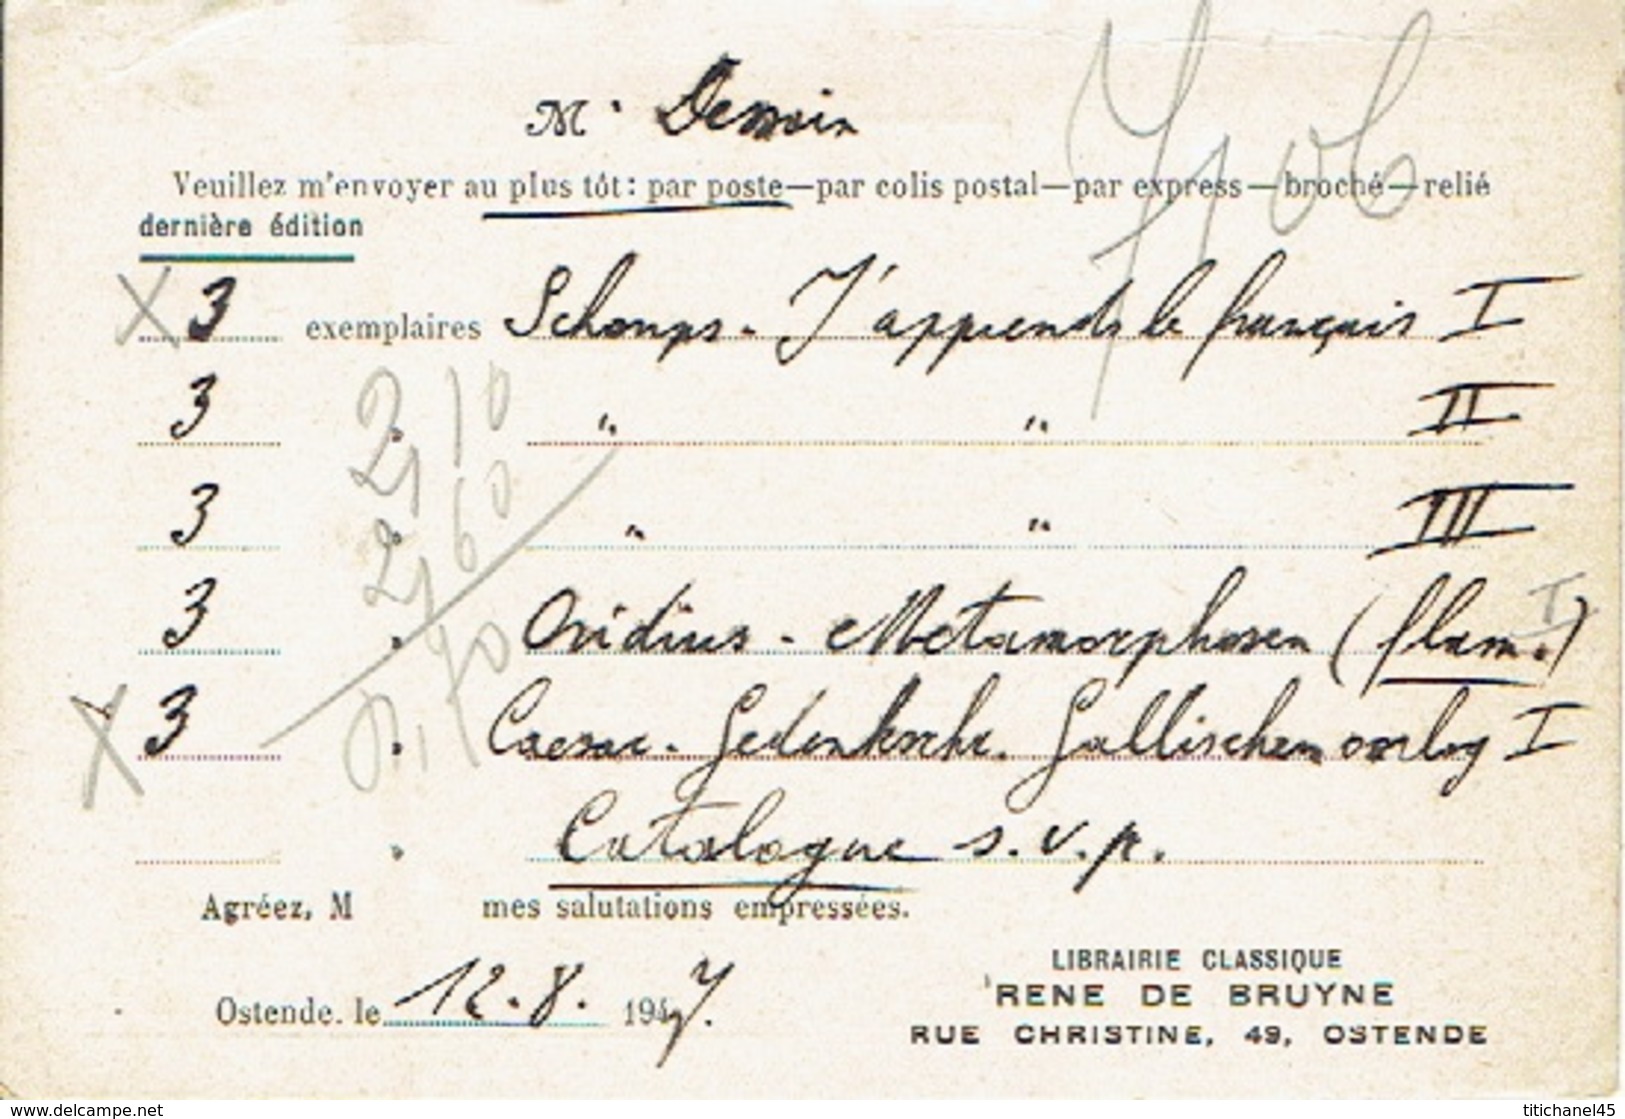 M. Dessain
Veuillez m'envoyer au plus tôt: par poste—par colis postal—par express—broché—relié
dernière édition
X 3 exemplaires Schoups - J'apprends le français I
3 " " II
3 " " III
3 Ovidius - Metamorphosen (flam.) I
X 3 Caesar - Gedenkschr. Gallischen oorlog I
Catalogue s.v.p.
Agréez, M mes salutations empressées.
Ostende, le 12.8. 1947.
LIBRAIRIE CLASSIQUE
RENE DE BRUYNE
RUE CHRISTINE, 49, OSTENDE
2,10
2,60
0,70
www.delcampe.net
titichanel45